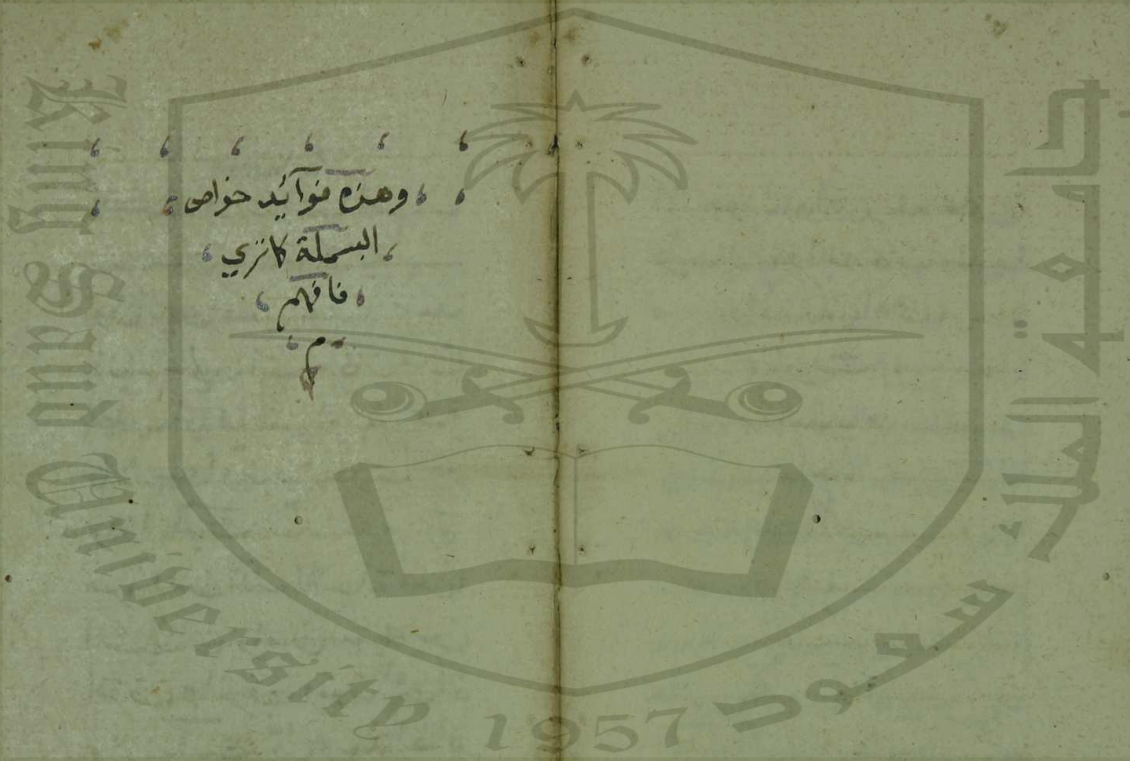 وهذه فوآئد خواص
البسملة كاتري
فافهم
م
King Saud University 1957
جامعة الملك سعود